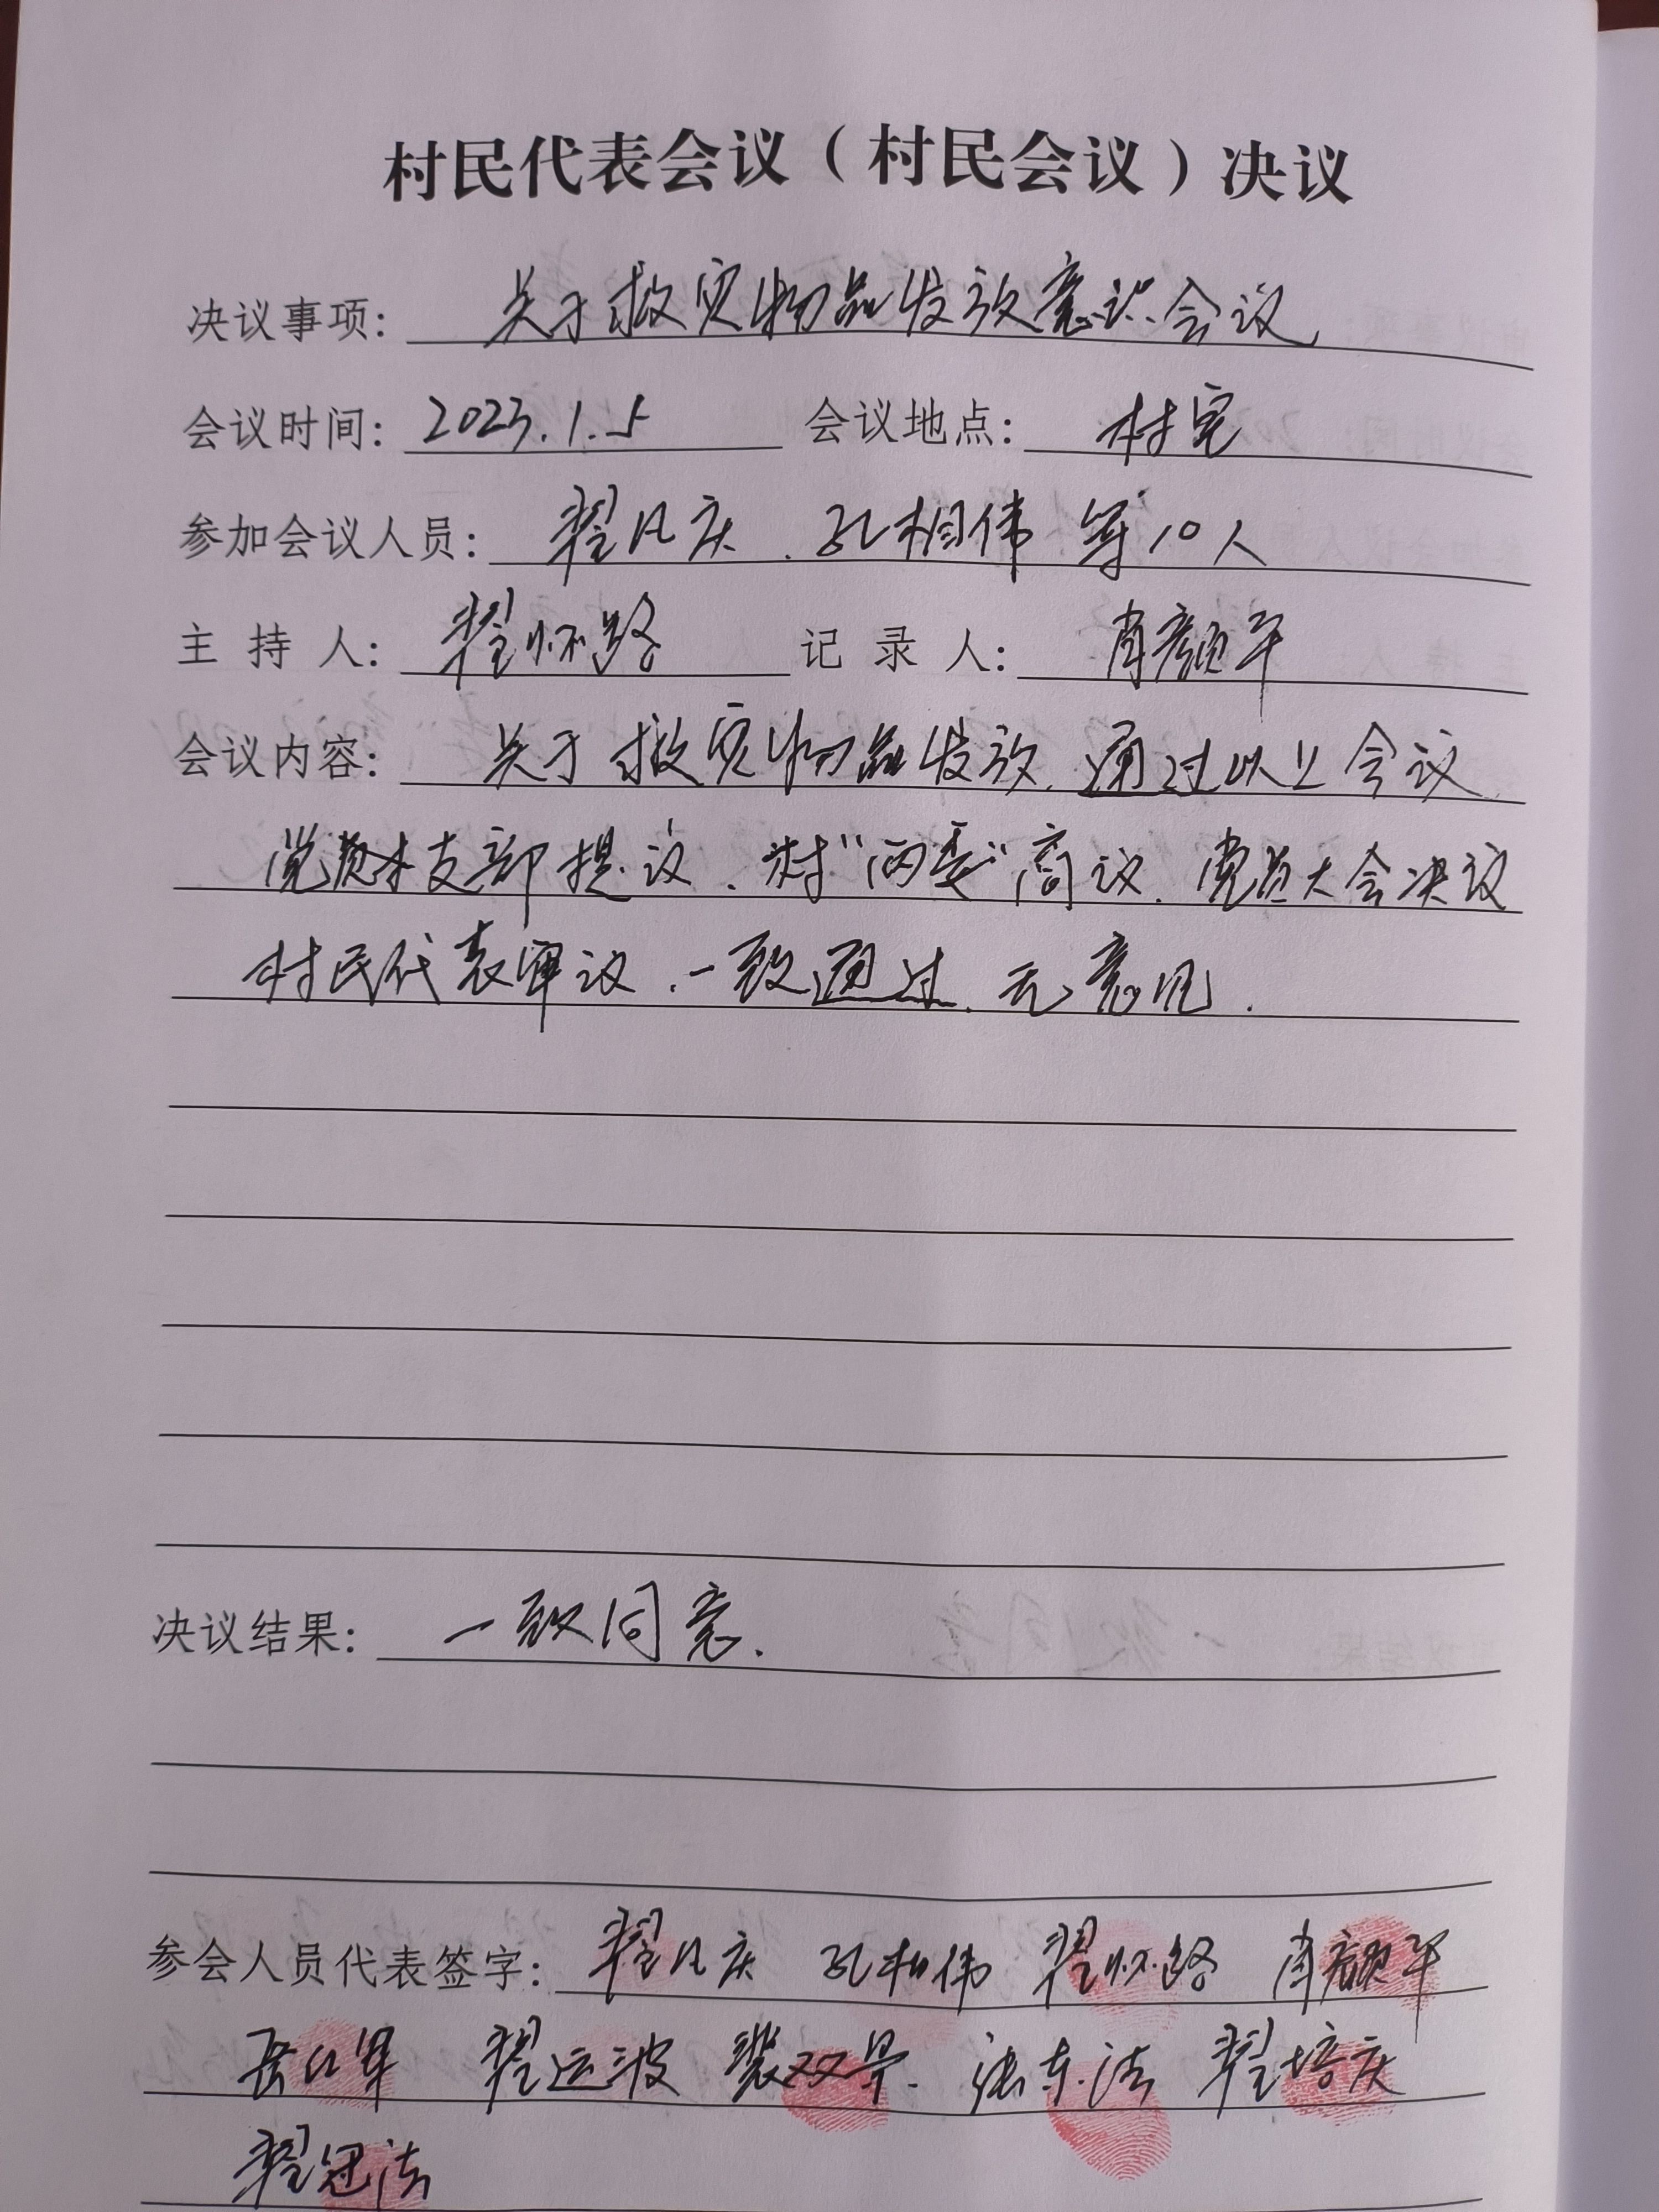 村民代表会议（村民会议）决议
决议事项： 关于救灾物品发放意识会议
会议时间： 2023.1.5 会议地点： 村室
参加会议人员： 翟凡庆、孔相伟 等10人
主 持 人： 翟怀路 记 录 人： 肖颜平
会议内容： 关于救灾物品发放.通过以上会议
党支部提议.村“两委”商议.党员大会决议
村民代表审议.一致通过.无意见.
决议结果： 一致同意.
参会人员代表签字： 翟凡庆 孔相伟 翟怀路 肖颜平
翟运波 裴双早. 张东法 翟培庆
翟冠法